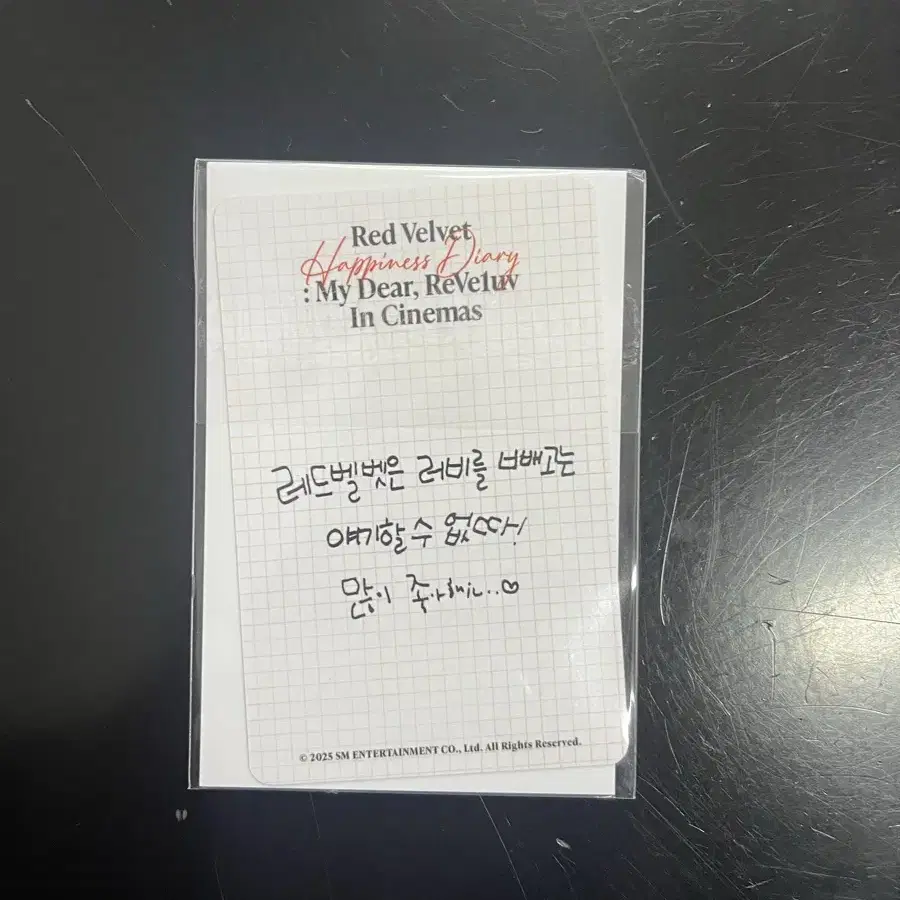 Red Velvet
Happiness Diary
: My Dear, ReVe1uv
In Cinemas
레드벨벳은 러비를 너빼고는
얘기할 수 없따!
많이 좋아해..♡
© 2025 SM ENTERTAINMENT CO., Ltd. All Rights Reserved.